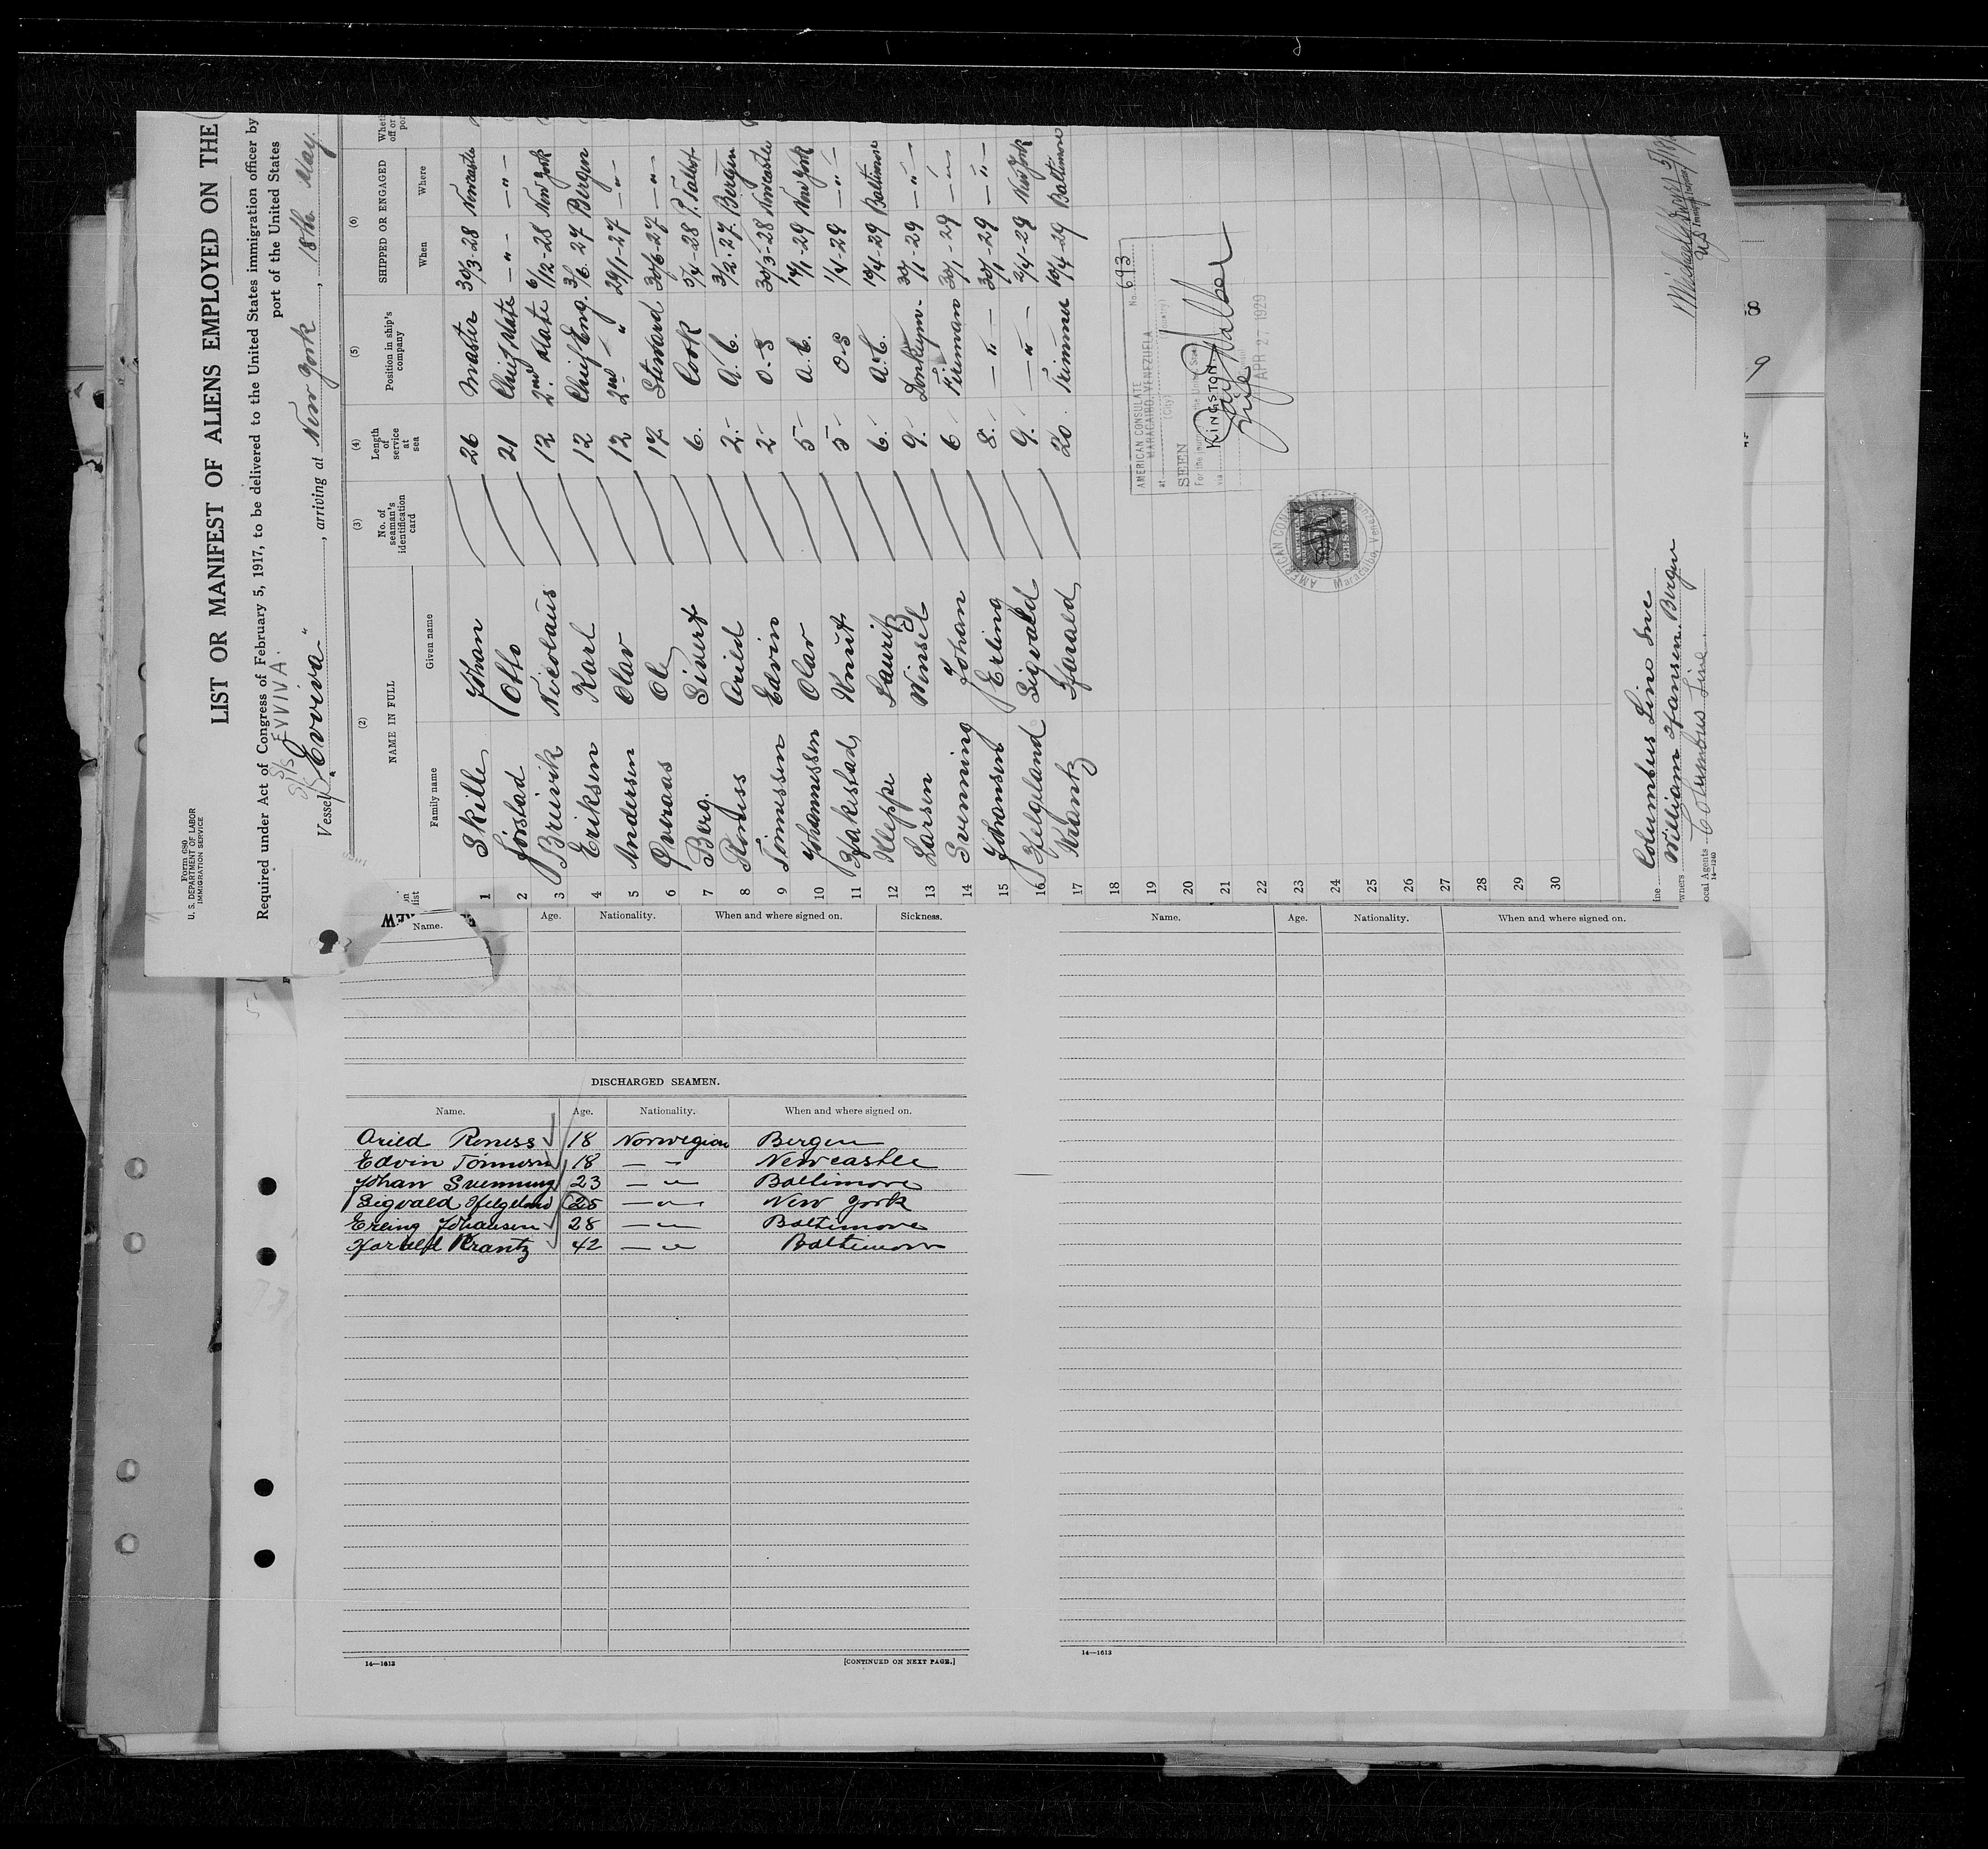 Form 680
U. S. DEPARTMENT OF LABOR
IMMIGRATION SERVICE
LIST OR MANIFEST OF ALIENS EMPLOYED ON THE
Required under Act of Congress of February 5, 1917, to be delivered to the United States immigration officer by
port of the United States
S/S EVVIVA.
Vessel "Evviva", arriving at New York, 18th May.
(2) (3) (4) (5) (6)
NAME IN FULL No. of seaman's identification card Length of service at sea Position in ship's company SHIPPED OR ENGAGED
Family name Given name When Where
1 Skille Johan 26 Master 30/3-28 Newcastle
2 Otto 21 Chief Mate -"- -"-
3 Breivik Nicolaus 12 2nd Mate 6/12-28 New York
4 Eriksen Karl 12 Chief Eng. 3/6-27 Bergen
5 Andersen Olav 12 2nd " 29/1-27 -"-
6 Overaas Ole 17 Steward 30/6-27 -"-
7 Berg. Sivert 6. Cook 5/4-28 P. Talbot
8 Røness Arild 2- A.B. 3/2-27 Bergen
9 Tonnessen Edvin 2- O.S 30/3-28 Newcastle
10 Johannessen Olav 5- A.B. 14/1-29 New York
11 Hakestad Knut 5- O.S 1/4-29 -"-
12 Kleppe Lauritz 6. A.B. 10/4-29 Baltimore
13 Larsen Winsel 9. Donkeym. 30/1-29 -"-
14 Svenning Johan 6 Fireman 30/1-29 -"-
15 Johansen Erling 8. -"- 30/1-29 -"-
16 Helgeland Sigvald 9. -"- 2/4-29 New York
17 Krantz Harald 20. Trimmer 10/4-29 Baltimore
18
19
20
21
22
23
24
25
26
27
28
29
30
AMERICAN CONSULATE No. 693
at MARACAIBO, VENEZUELA
(City) (Country)
SEEN
For the journey to the United States
via KINGSTON
APR 27 1929
AMERICAN CON
Maracaibo, Venez
Columbus Line Inc
owners William Hansen. Bergen
ocal Agents Columbus Line.
14-1240
Name. Age. Nationality. When and where signed on. Sickness.
DISCHARGED SEAMEN.
Name. Age. Nationality. When and where signed on.
Arild Roness 18 Norwegian Bergen
Edvin Tonnesen 18 -"- Newcastle
Johan Svenning 23 -"- Baltimore
Sigvald Helgeland 25 -"- New York
Erling Johansen 28 -"- Baltimore
Harald Krantz 42 -"- Baltimore
14—1613 [CONTINUED ON NEXT PAGE.]
Name. Age. Nationality. When and where signed on.
14—1613